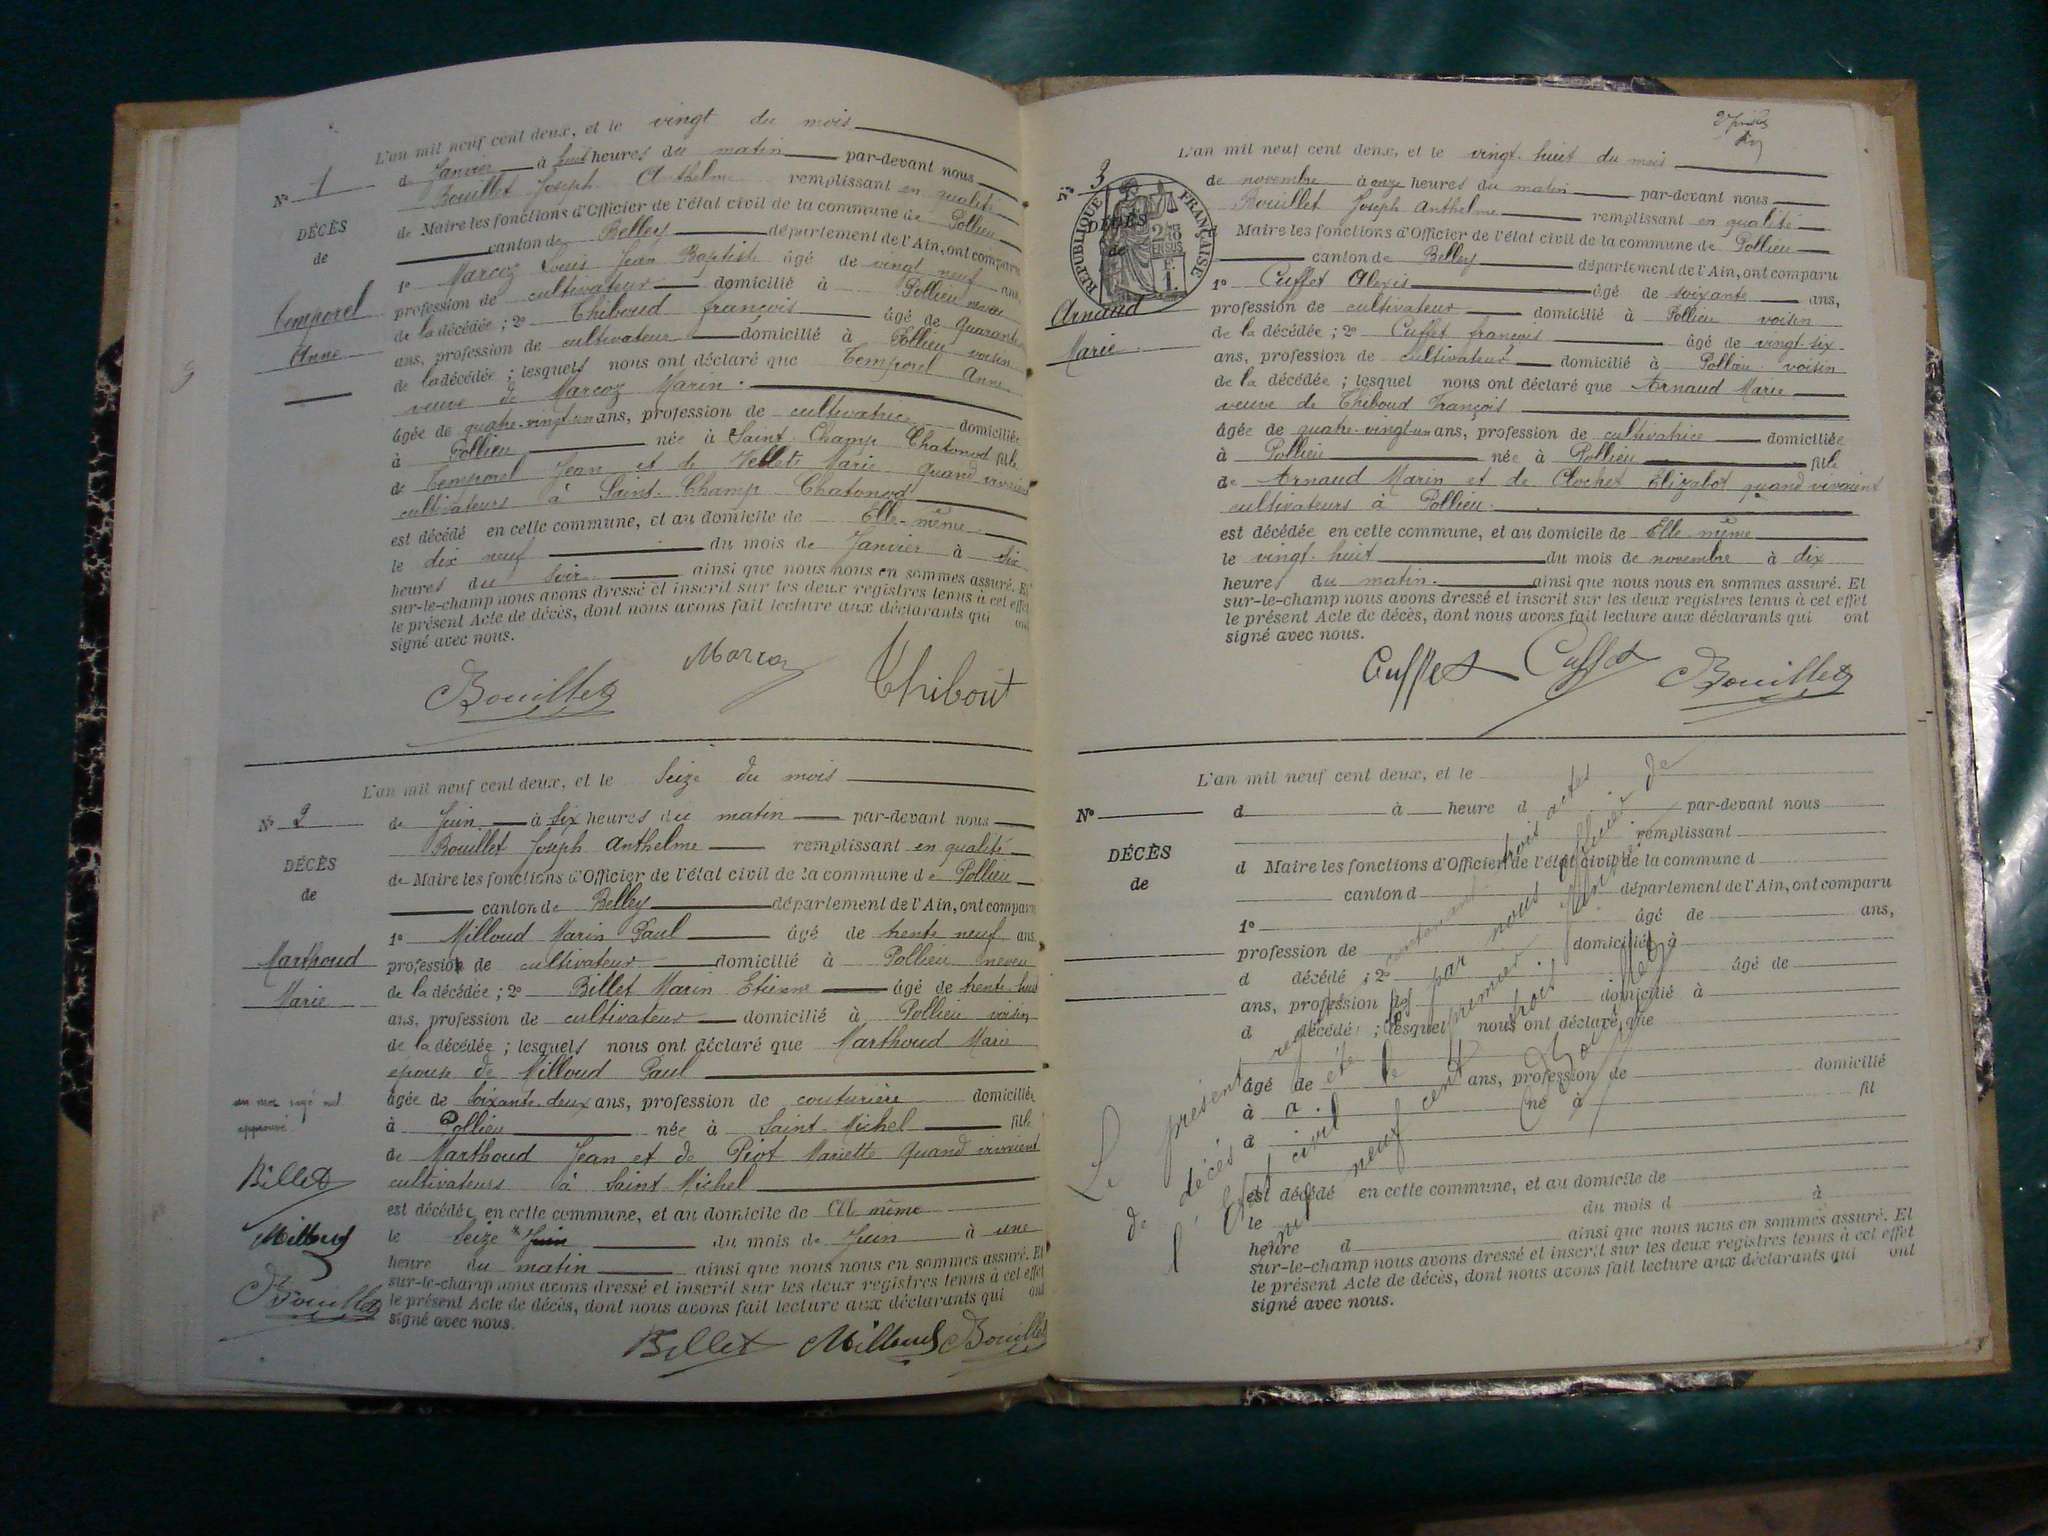 L'an mil neuf cent deux, et le vingt du mois
Nº 1
de Janvier à huit heures du matin par-devant nous
Bouillet Joseph Anthelme remplissant en qualité
DÉCÈS
de
de Maire les fonctions d'Officier de l'état civil de la commune de Pollieu
canton de Belley département de l'Ain, ont comparu
1º Marcoz Louis Jean Baptiste âgé de vingt neuf ans,
profession de cultivateur domicilié à Pollieu neveu
Temporel
Anne
de la décédée ; 2º Thiboud françois âgé de quarante
ans, profession de cultivateur domicilié à Pollieu voisin
de la décédée ; lesquels nous ont déclaré que Temporel Anne
veuve de Marcoz Marin.
âgée de quatre-vingt-un ans, profession de cultivatrice domiciliée
à Pollieu née à Saint-Champ Chatonod fille
de Temporel Jean et de Vellet Marie quand vivaient
cultivateurs à Saint-Champ-Chatonod
est décédé en cette commune, et au domicile de Elle-même
le dix neuf du mois de Janvier à six
heures du soir. ainsi que nous nous en sommes assuré. Et
sur-le-champ nous avons dressé et inscrit sur les deux registres tenus à cet effet
le présent Acte de décès, dont nous avons fait lecture aux déclarants qui ont
signé avec nous.
Bouillet Marcoz Thibout
L'an mil neuf cent deux, et le Seize du mois
Nº 2
de Juin à six heures du matin par-devant nous
Bouillet Joseph Anthelme remplissant en qualité
DÉCÈS
de
de Maire les fonctions d'Officier de l'état civil de la commune de Pollieu
canton de Belley département de l'Ain, ont comparu
1º Milloud Marin Paul âgé de trente neuf ans
Marthoud
Marie
profession de cultivateur domicilié à Pollieu neveu
de la décédée ; 2º Billet Marin Etienne âgé de trente huit
ans, profession de cultivateur domicilié à Pollieu voisin
de la décédée ; lesquels nous ont déclaré que Marthoud Marie
épouse de Milloud Paul
âgée de soixante-deux ans, profession de couturière domiciliée
à Pollieu née à Saint-Michel fille
de Marthoud Jean et de Piot Mariette quand vivaient
cultivateurs à Saint-Michel
est décédée en cette commune, et au domicile de Elle même
le Seize Juin du mois de Juin à une
heure du matin ainsi que nous nous en sommes assuré. Et
sur-le-champ nous avons dressé et inscrit sur les deux registres tenus à cet effet
le présent Acte de décès, dont nous avons fait lecture aux déclarants qui ont
signé avec nous.
un mot rayé nul
approuvé
Billet
Milloud
Bouillet
Billet Milloud Bouillet
L'an mil neuf cent deux, et le vingt-huit du mois
Nº 3
de novembre à onze heures du matin par-devant nous
Bouillet Joseph Anthelme remplissant en qualité
RÉPUBLIQUE FRANÇAISE
DÉCÈS
de
Maire les fonctions d'Officier de l'état civil de la commune de Pollieu
canton de Belley département de l'Ain, ont comparu
1º Cuffet Alexis âgé de soixante ans,
Arnaud
Marie
profession de cultivateur domicilié à Pollieu voisin
de la décédée ; 2º Cuffet françois âgé de vingt-six
ans, profession de cultivateur domicilié à Pollieu voisin
de la décédée ; lesquel nous ont déclaré que Arnaud Marie
veuve de Thiboud François
âgée de quatre-vingt-un ans, profession de cultivatrice domiciliée
à Pollieu née à Pollieu fille
de Arnaud Marin et de Clochet Elizabet quand vivaient
cultivateurs à Pollieu.
est décédée en cette commune, et au domicile de Elle-même
le vingt-huit du mois de novembre à dix
heures du matin. ainsi que nous nous en sommes assuré. Et
sur-le-champ nous avons dressé et inscrit sur les deux registres tenus à cet effet
le présent Acte de décès, dont nous avons fait lecture aux déclarants qui ont
signé avec nous.
Cuffet Cuffet Bouillet
L'an mil neuf cent deux, et le
Nº
d à heure d par-devant nous
remplissant
DÉCÈS
de
d Maire les fonctions d'Officier de l'état civil de la commune d
canton d département de l'Ain, ont comparu
1º âgé de ans,
profession de domicilié à
d décédé ; 2º âgé de
ans, profession de domicilié à
d décédé ; lesquel nous ont déclaré que
âgé de ans, profession de domicilié
à né à fil
d
est décédé en cette commune, et au domicile de
le du mois d à
heure d ainsi que nous nous en sommes assuré. Et
sur-le-champ nous avons dressé et inscrit sur les deux registres tenus à cet effet
le présent Acte de décès, dont nous avons fait lecture aux déclarants qui ont
signé avec nous.
Le présent registre contenant trois actes de
décès a été clos par nous officier de
l'état civil le premier Janvier
mil neuf cent trois
Bouillet